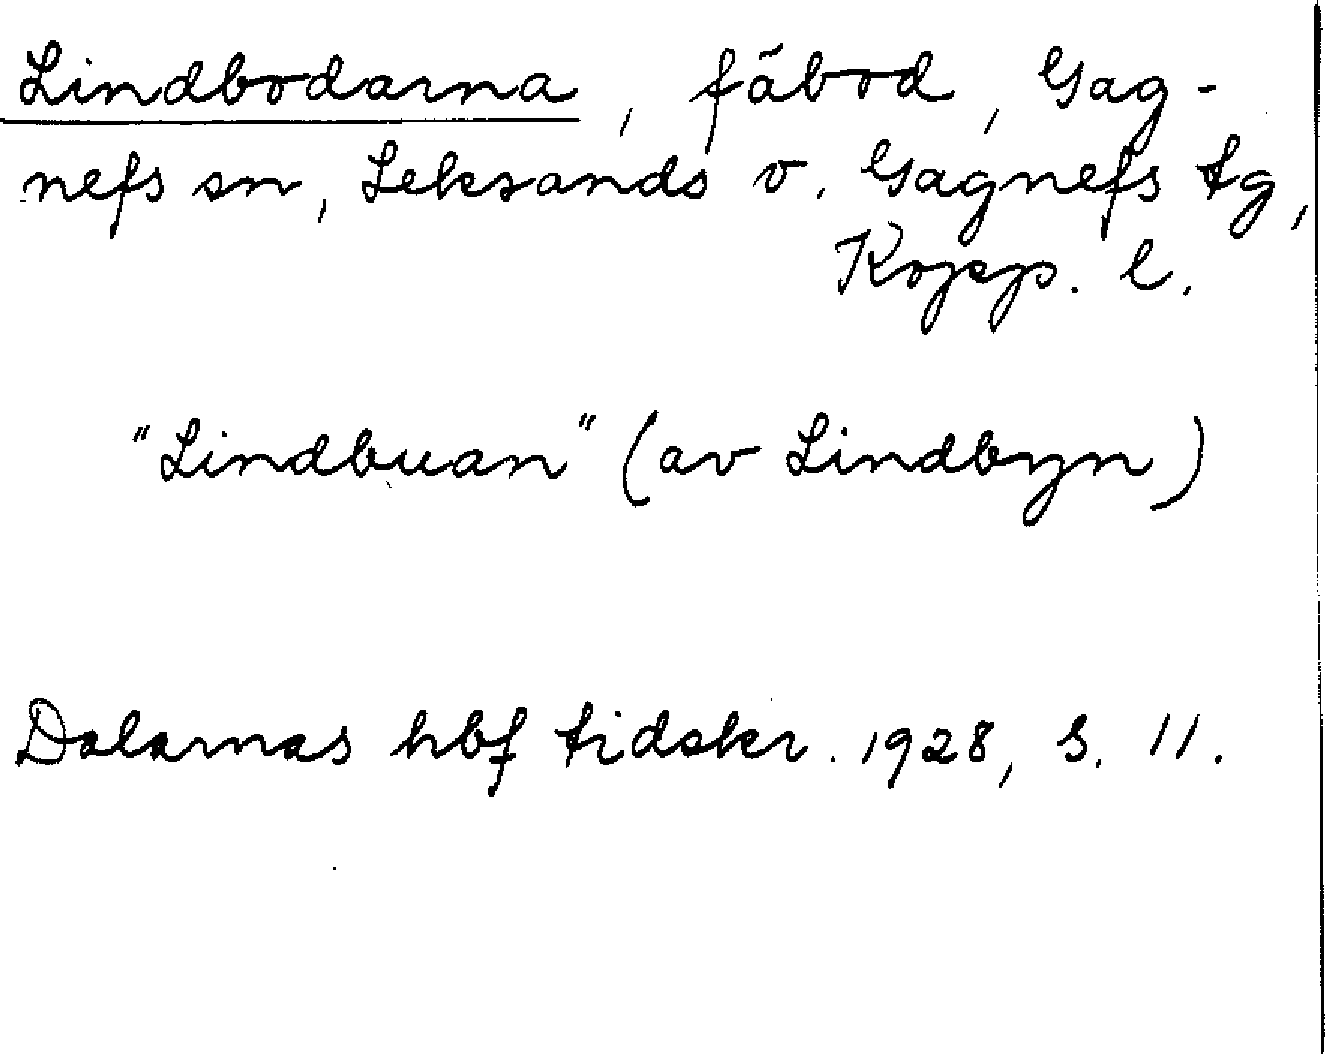 Lindbodarna, fäbod, Gag-
nefs sn, Leksands o. Gagnefs tg,
Kopp. l.
"Lindbuan" (av Lindbyn)
Dalarnas hbf tidskr. 1928, S. 11.